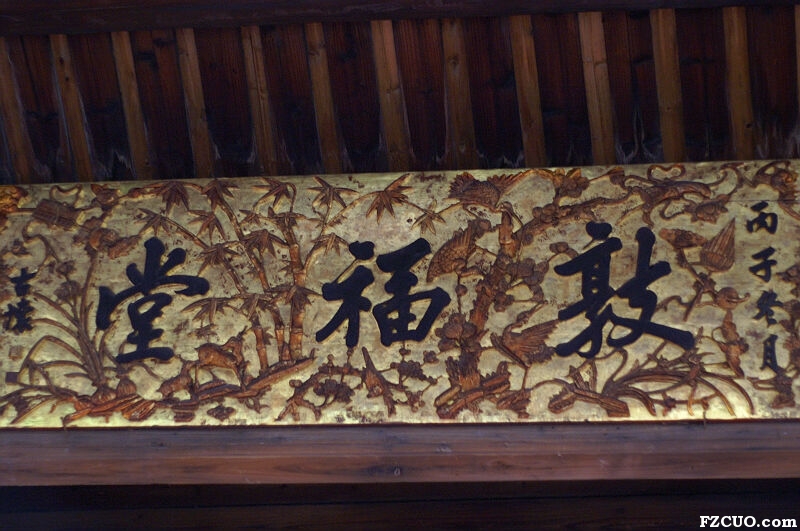 丙子冬月
敦福堂
FZCUO.com